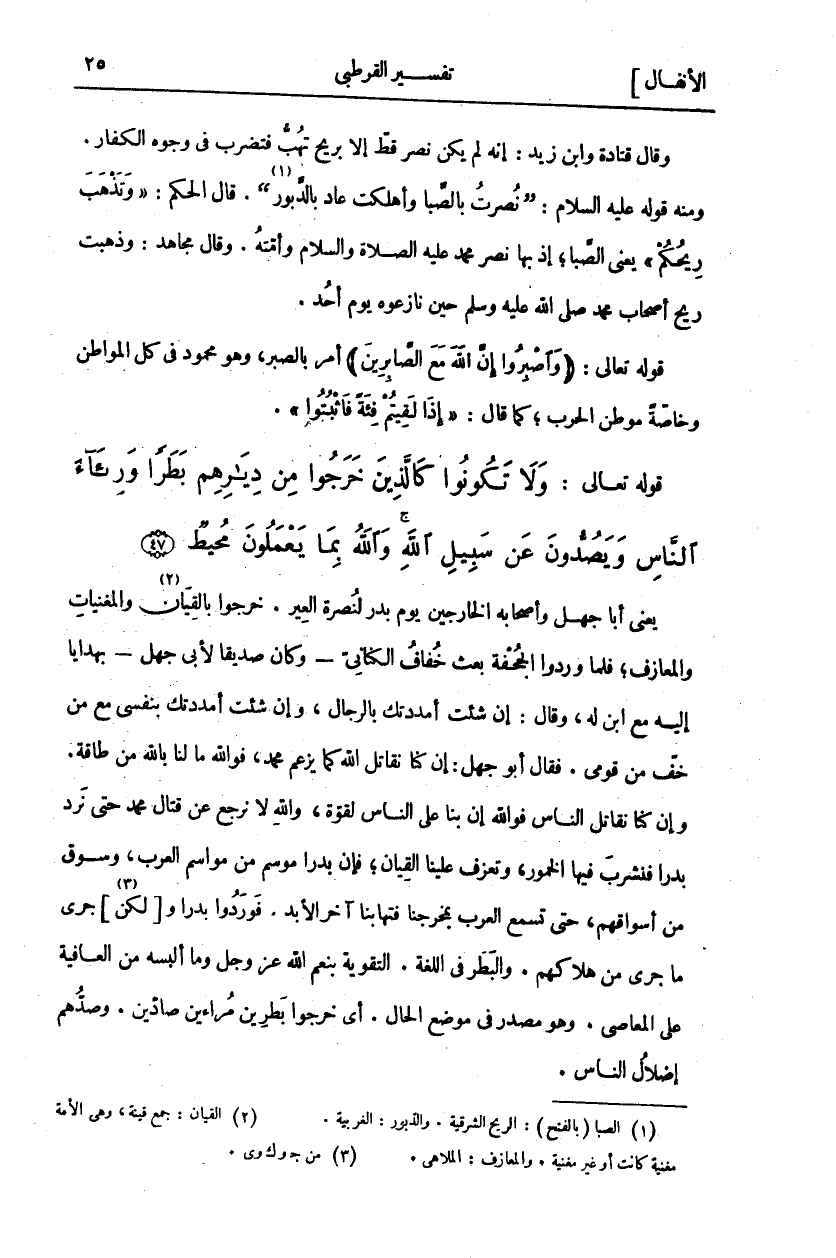 الأنفال ] تفسير القرطبى ٢٥
وقال قتادة وابن زيد : إنه لم يكن نصر قطّ إلا بريح تَهُبُّ فتضرب فى وجوه الكفار .
ومنه قوله عليه السلام : ” نُصرتُ بالصَّبا وأهلكت عاد بالدَّبور(١) “ . قال الحكم : « وَتَذْهَبَ
رِيحُكُمْ » يعنى الصَّبا؛ إذ بها نصر محمد عليه الصلاة والسلام وأمّتهُ . وقال مجاهد : وذهبت
ريح أصحاب محمد صلى الله عليه وسلم حين نازعوه يوم أُحُد .
قوله تعالى : ﴿ وَٱصْبِرُوا إِنَّ اللَّهَ مَعَ الصَّابِرِينَ ﴾ أمر بالصبر، وهو محمود فى كل المواطن
وخاصّةً موطن الحرب ؛ كما قال : « إِذَا لَقِيتُمْ فِئَةً فَاثْبُتُوا » .
قوله تعالى : وَلَا تَكُونُوا كَالَّذِينَ خَرَجُوا مِن دِيَـٰرِهِم بَطَرًا وَرِئَآءَ
ٱلنَّاسِ وَيَصُدُّونَ عَن سَبِيلِ ٱللَّهِ ۚ وَٱللَّهُ بِمَا يَعْمَلُونَ مُحِيطٌ ٤٧
يعنى أبا جهل وأصحابه الخارجين يوم بدر لنُصرة العِير . خرجوا بالقِيَان(٢) والمغنيات
والمعازف؛ فلما وردوا الجُحْفة بعث خُفافُ الكنانىّ — وكان صديقا لأبى جهل — بهدايا
إليه مع ابن له ، وقال : إن شئت أمددتك بالرجال ، وإن شئت أمددتك بنفسى مع من
خفّ من قومى . فقال أبو جهل : إن كنا نقاتل الله كما يزعم محمد، فوالله ما لنا بالله من طاقة .
وإن كنا نقاتل الناس فوالله إن بنا على الناس لقوّة ، واللهِ لا نرجع عن قتال محمد حتى نَرِد
بدرا فنشربَ فيها الخمور، وتعزف علينا القِيان؛ فإن بدرا موسم من مواسم العرب، وسوق
من أسواقهم، حتى تسمع العرب بمخرجنا فتهابنا آخر الأبد . فَوَرَدُوا بدرا و[لكن](٣) جرى
ما جرى من هلاكهم . والبَطَر فى اللغة . التقوية بنعم الله عز وجل وما ألبسه من العافية
على المعاصى . وهو مصدر فى موضع الحال . أى خرجوا بَطِرِين مُراءين صادّين . وصدُّهم
إضلالُ الناس .
(١) الصبا (بالفتح) : الريح الشرقية . والدبور : الغربية . (٢) القيان : جمع قينة ، وهى الأمة
مغنية كانت أو غير مغنية . والمعازف : الملاهى . (٣) من جـ وك وى .